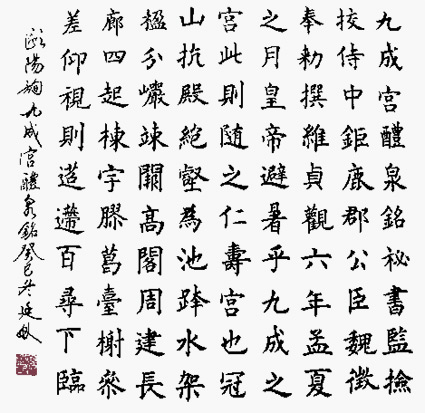 九成宮醴泉銘秘書監撿
挍侍中鉅鹿郡公臣魏徵
奉勑撰維貞觀六年孟夏
之月皇帝避暑乎九成之
宮此則隨之仁壽宮也冠
山抗殿絕壑為池跨水架
楹分巖竦闕高閣周建長
廊四起棟宇膠葛臺榭參
差仰視則迢遰百尋下臨
歐陽詢九成宮醴泉銘癸巳冬